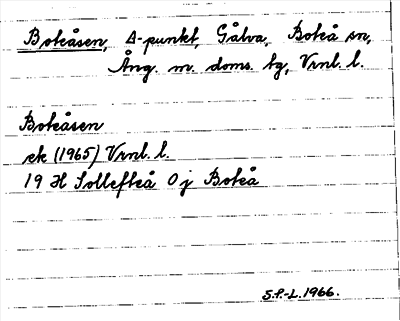 Boteåsen, Δ-punkt, Gålva, Boteå sn,
Ång. m. doms. tg, Vrnl. l.
Boteåsen
ek (1965) Vrnl. l.
19 H Sollefteå 0 j Boteå
S.F.-L. 1966.